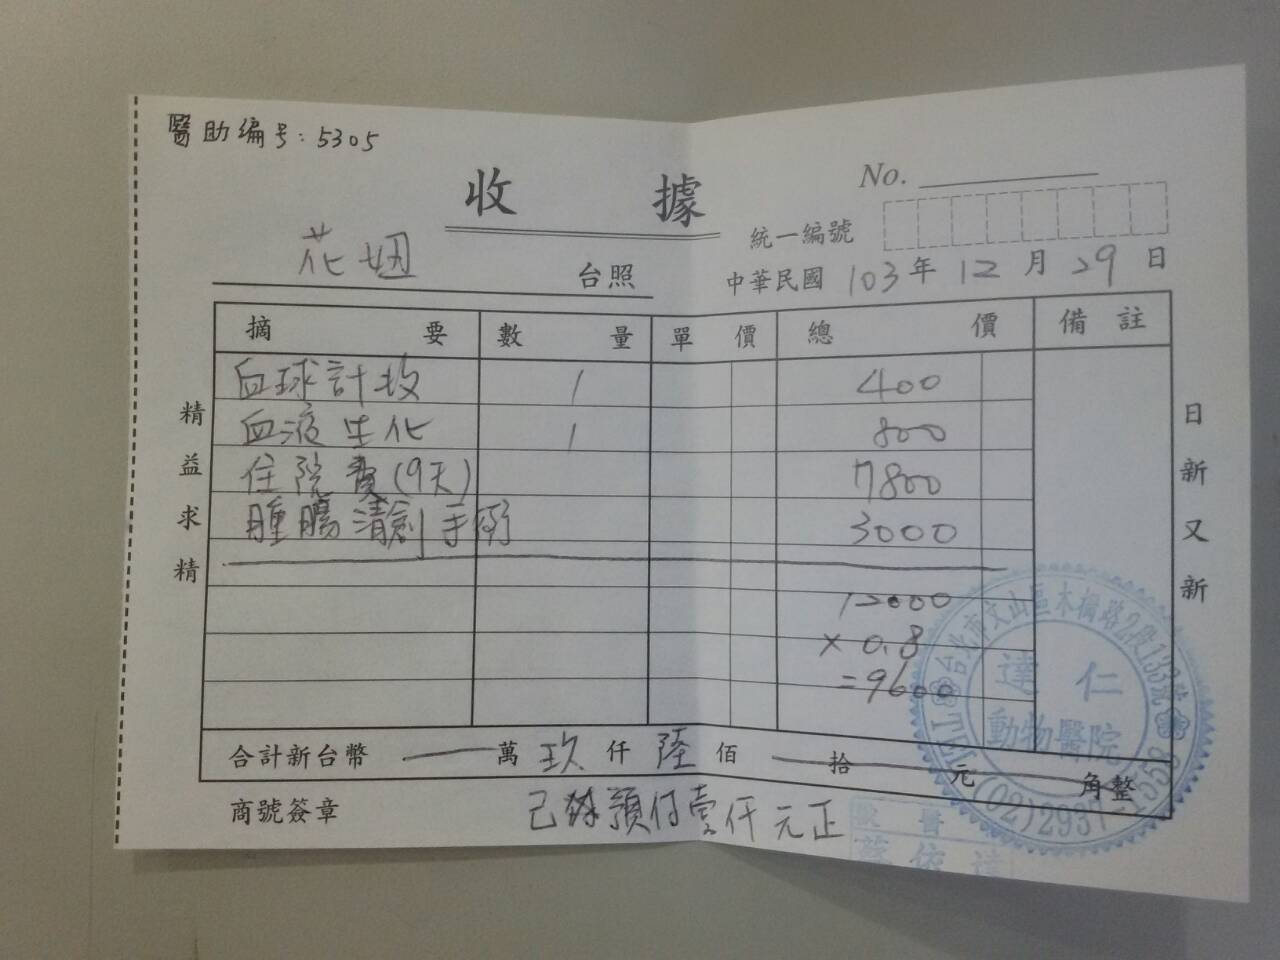 醫助編号:5305
收 據
No.
統一編號
花妞 台照
中華民國 103 年 12 月 29 日
摘 要 數 量 單 價 總 價 備 註
血球計数 1 400
血液生化 1 800
住院費(9天) 7800
腫瘍清創手術 3000
12000
× 0.8
=9600
合計新台幣 萬 玖 仟 陸 佰 拾 元 角整
商號簽章
已 預付壹仟元正
精益求精
日新又新
台北市文山區木柵路2段133號
達仁
動物醫院
TEL (02)2937-1558
獸醫